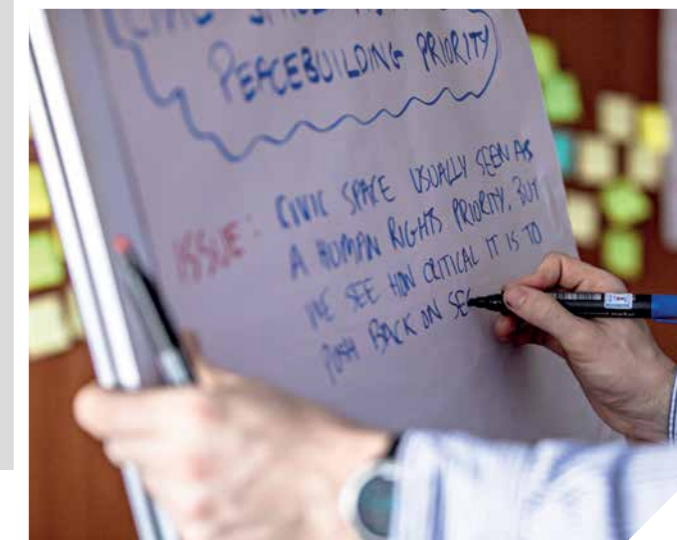 CIVIC SPACE
PEACEBUILDING PRIORITY
ISSUE: CIVIC SPACE USUALLY SEEN AS
A HUMAN RIGHTS PRIORITY, BUT
WE SEE HOW CRITICAL IT IS TO
PUSH BACK ON SEC